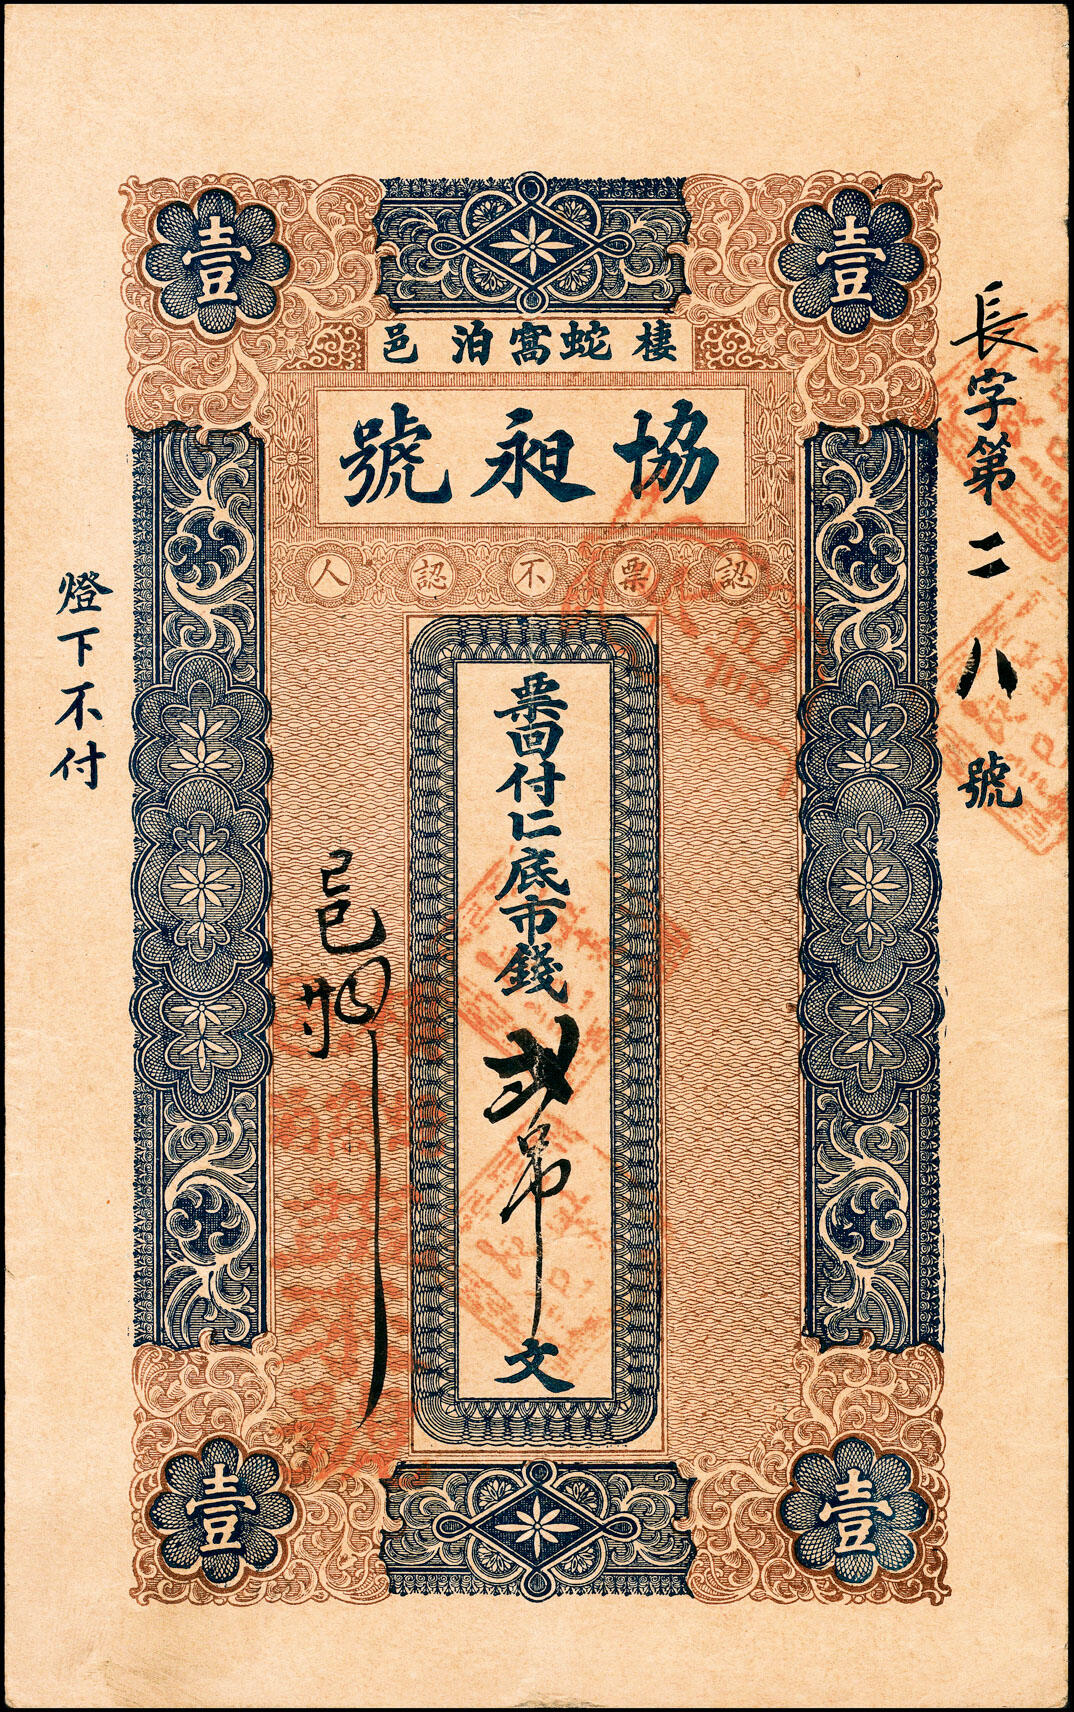 壹
壹
棲蛇窩泊邑
協昶號
認票不認人
長字第二八號
票回付仁底市錢貳吊文
己巳
燈下不付
壹
壹